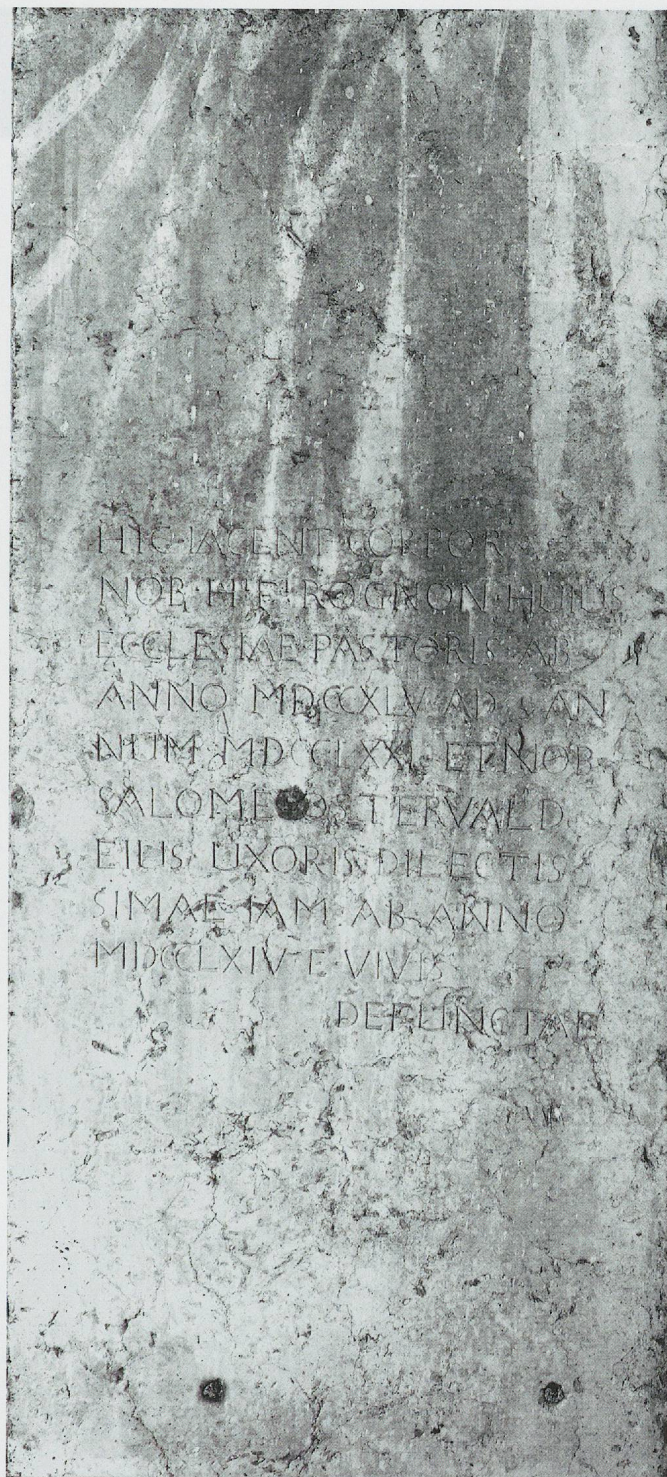 HIC · IACENT · CORPOR
NOB · H! F! ROGNON · HUIUS
ECCLESIAE · PASTORIS · AB
ANNO MDCCXLV · AD · AN
NUM · MDCCLXXI · ET · NOB
SALOME OSTERVALD
EIUS · UXORIS · DILECTIS
SIMAE · IAM · AB · ANNO
MDCCLXIV · E · VIVIS
DEFUNCTAE